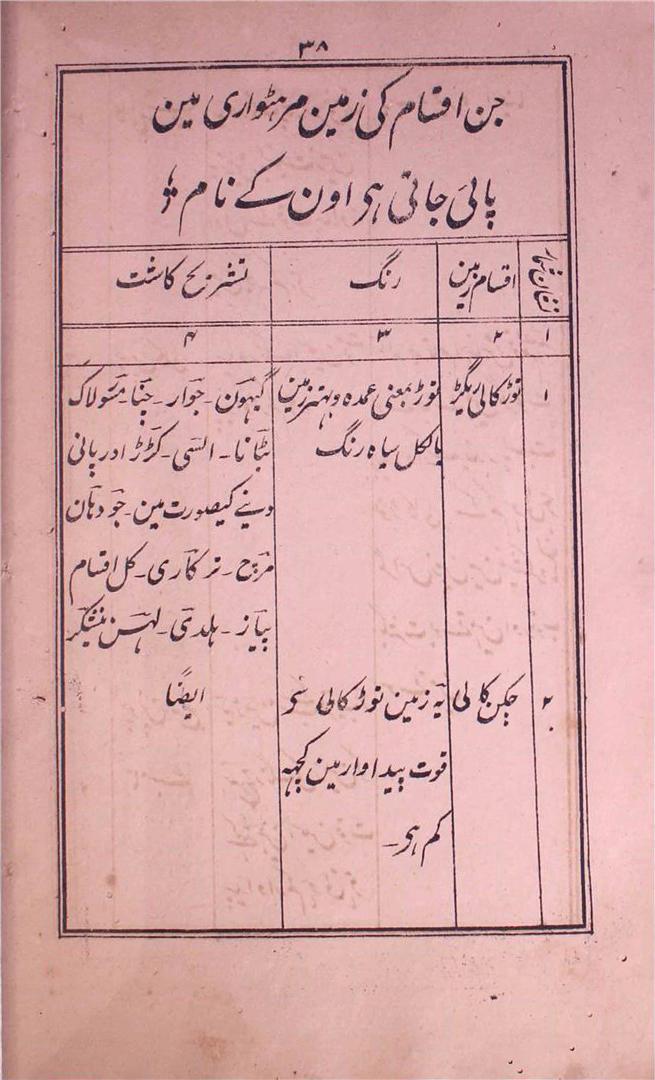 ۳۸
جن اقسام کی زمین مرہٹواری مین
پائی جاتی ہی اون کے نام
نشان شمار	اقسام زمین	رنگ	تشریح کاشت
۱	۲	۳	۴
۱	نوڑ کالی ریگڑ	نوڑ بمعنی عمدہ وبہتر زمین	گیہون۔ جوار۔ چنا۔
بالکل سیاہ رنگ	بٹانا۔ السی۔ کرڑ اور پانی
دینے کیصورت مین۔ جو دہان
مرچ۔ ترکاری۔ کل اقسام
پیاز۔ ہلدی۔ لہسن نیشکر
۲	چکن کالی	یہ زمین نوڑ کالی سی	ایضًا
قوت پیداوار مین کچہہ
کم ہی۔